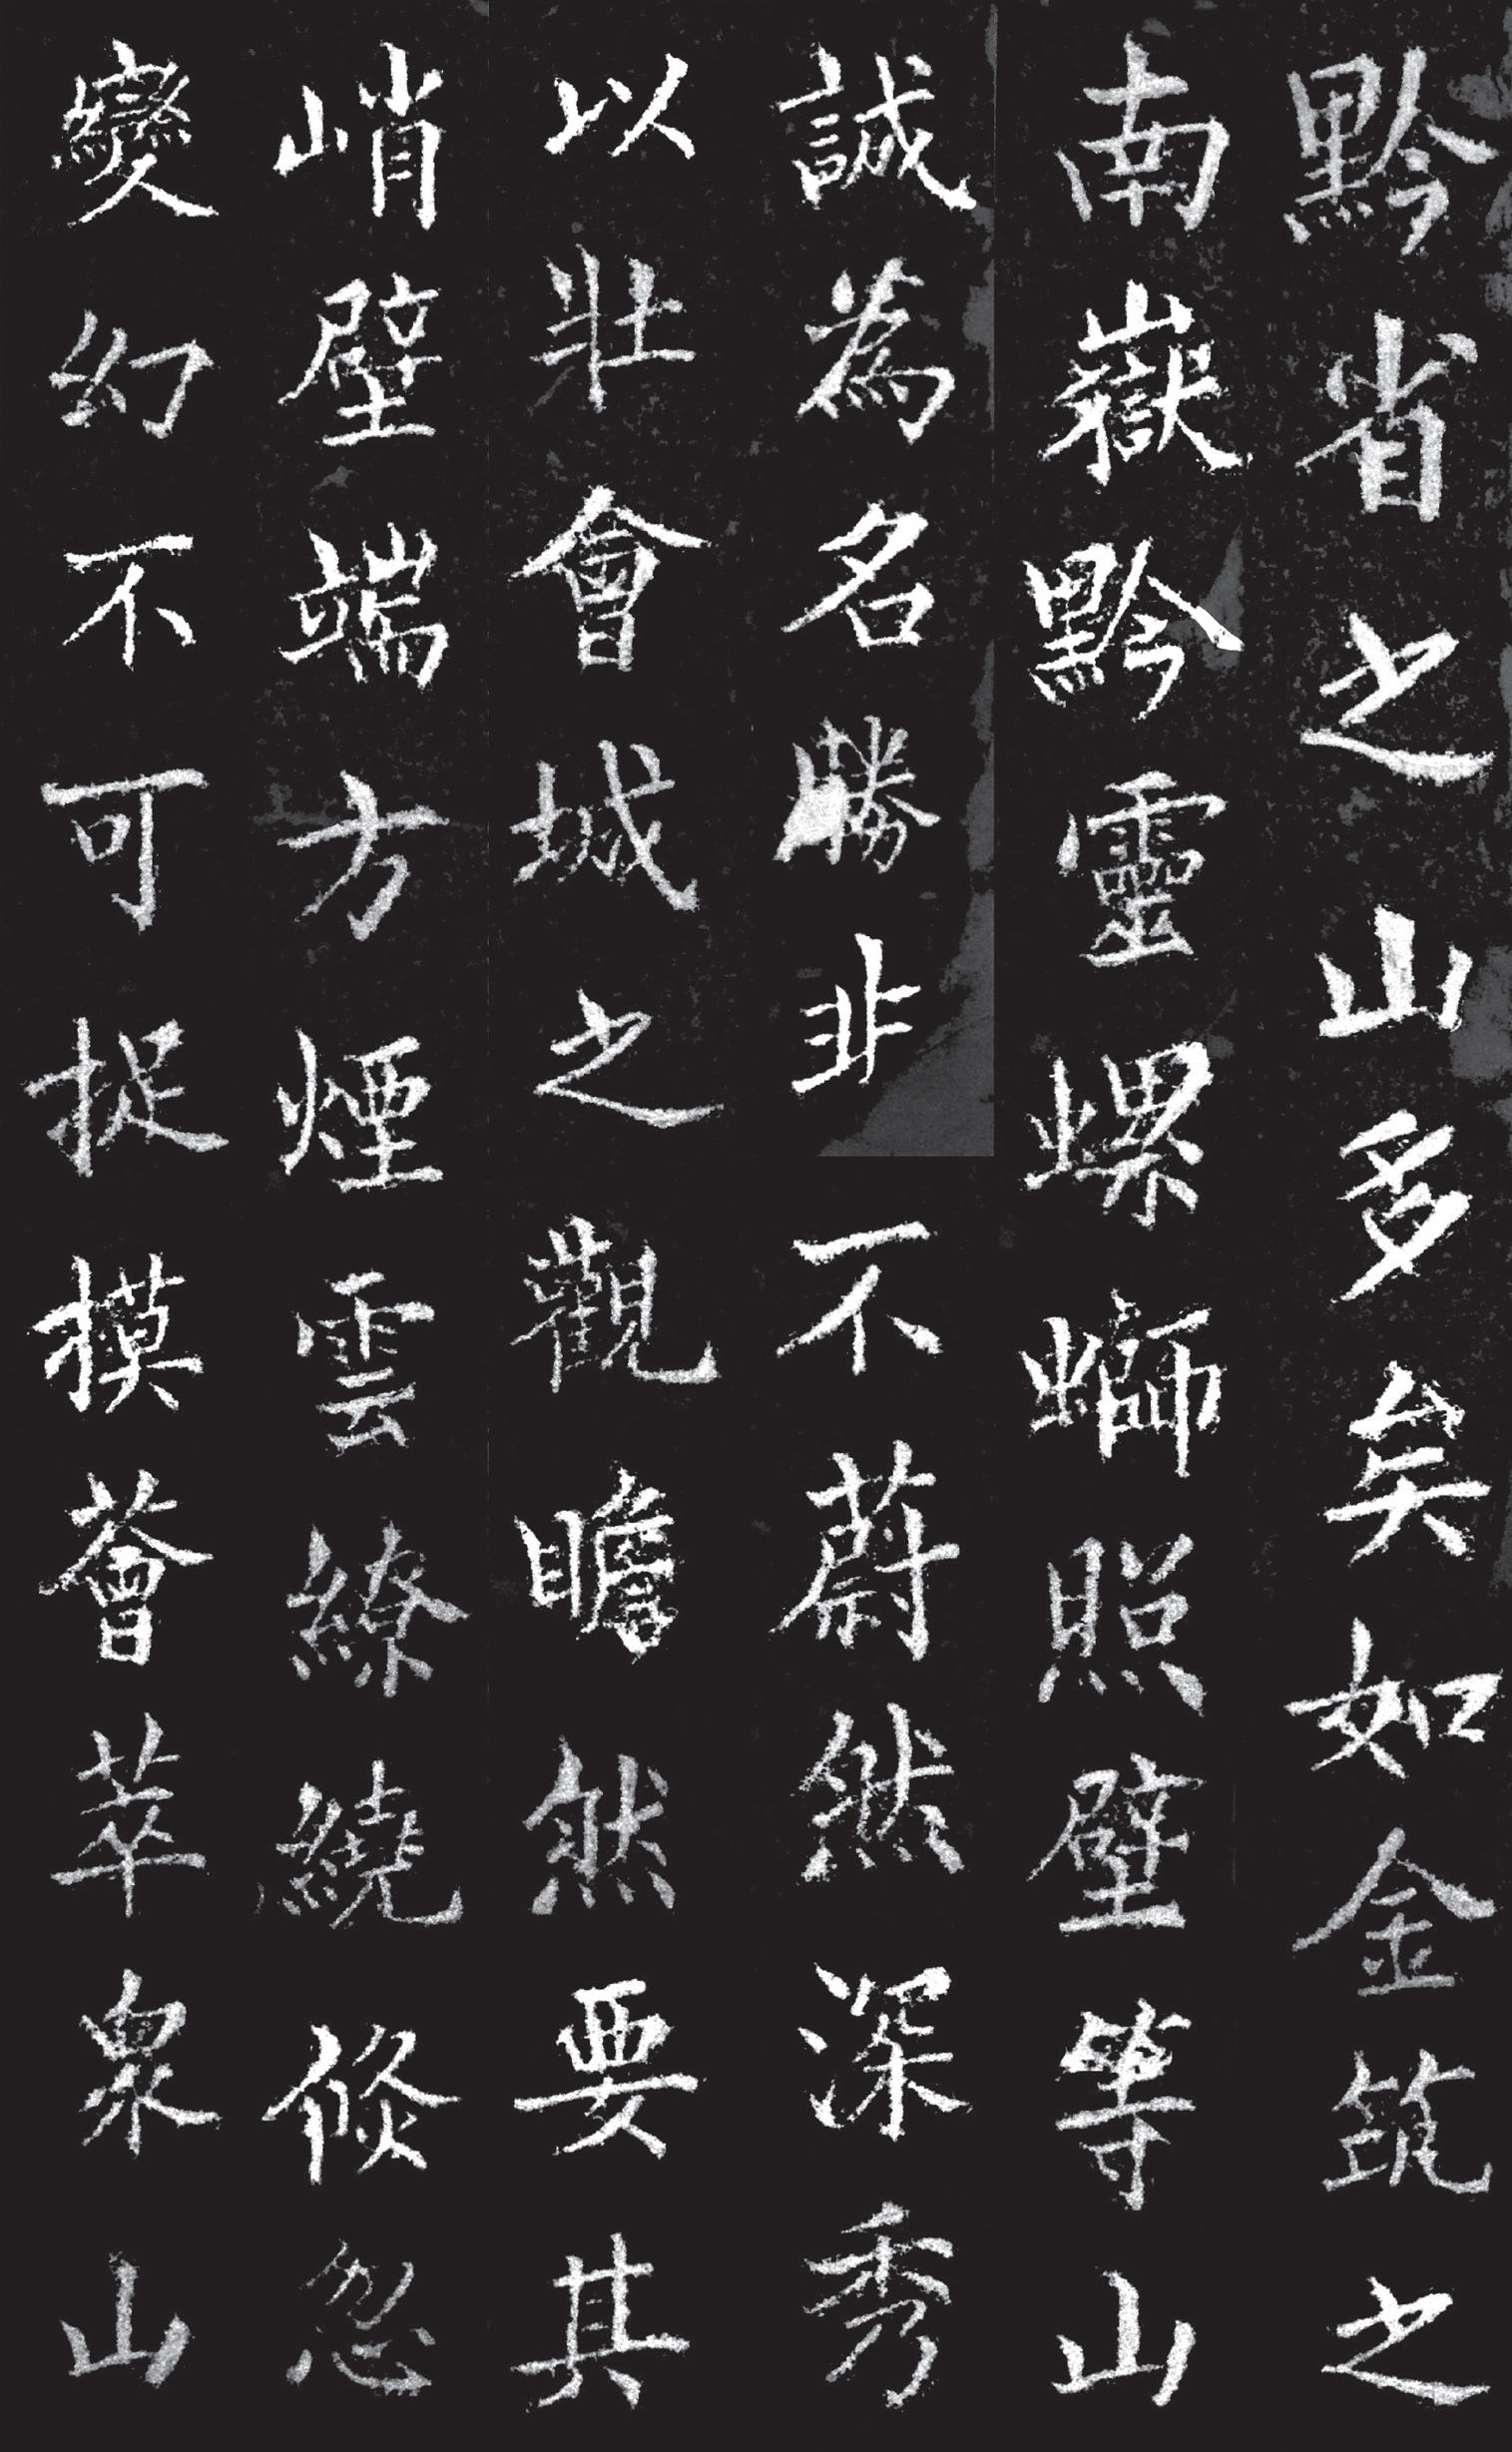 黔省之山多矣如金筑之
南嶽黔靈螺螄照壁等山
誠為名勝非不蔚然深秀
以壯會城之觀瞻然要其
峭壁端方煙雲繚繞倏忽
變幻不可捉摸薈萃眾山